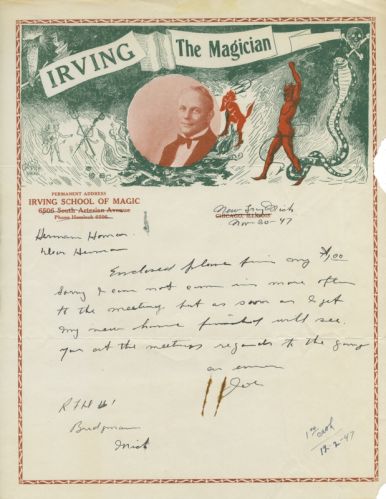 IRVING The Magician
PERMANENT ADDRESS
IRVING SCHOOL OF MAGIC
6506 South Artesian Avenue
Phone Hemlock
CHICAGO, ILLINOIS
New Troy Mich
Nov 30-47
Herman Homar
Dear Herman
Enclosed please find my $1.00
Sorry I can not come in more often
to the meeting but as soon as I get
my new house finished will see
you at the meetings regards to the gang
as ever
Joe
R F D #1
Bridgman
Mich
12-2-47